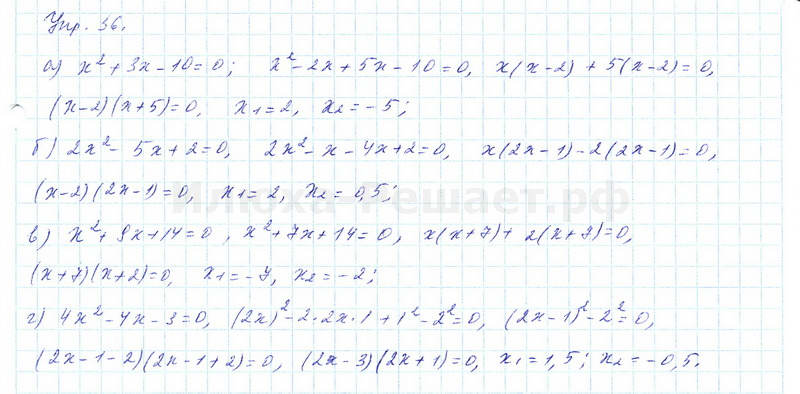 Упр. 36.
а) x² + 3x - 10 = 0; x² - 2x + 5x - 10 = 0, x(x-2) + 5(x-2) = 0,
(x-2)(x+5)=0, x₁=2, x₂=-5;
б) 2x² - 5x + 2 = 0, 2x² - x - 4x + 2 = 0, x(2x-1) - 2(2x-1) = 0,
(x-2)(2x-1)=0, x₁=2, x₂=0,5;
Илюха-решает.рф
в) x² + 9x + 14 = 0, x² + 7x + 14 = 0, x(x+7) + 2(x+7) = 0,
(x+7)(x+2)=0, x₁=-7, x₂=-2;
г) 4x² - 4x - 3 = 0, (2x)² - 2·2x·1 + 1² - 2² = 0, (2x-1)² - 2² = 0,
(2x-1-2)(2x-1+2)=0, (2x-3)(2x+1)=0, x₁=1,5; x₂=-0,5.